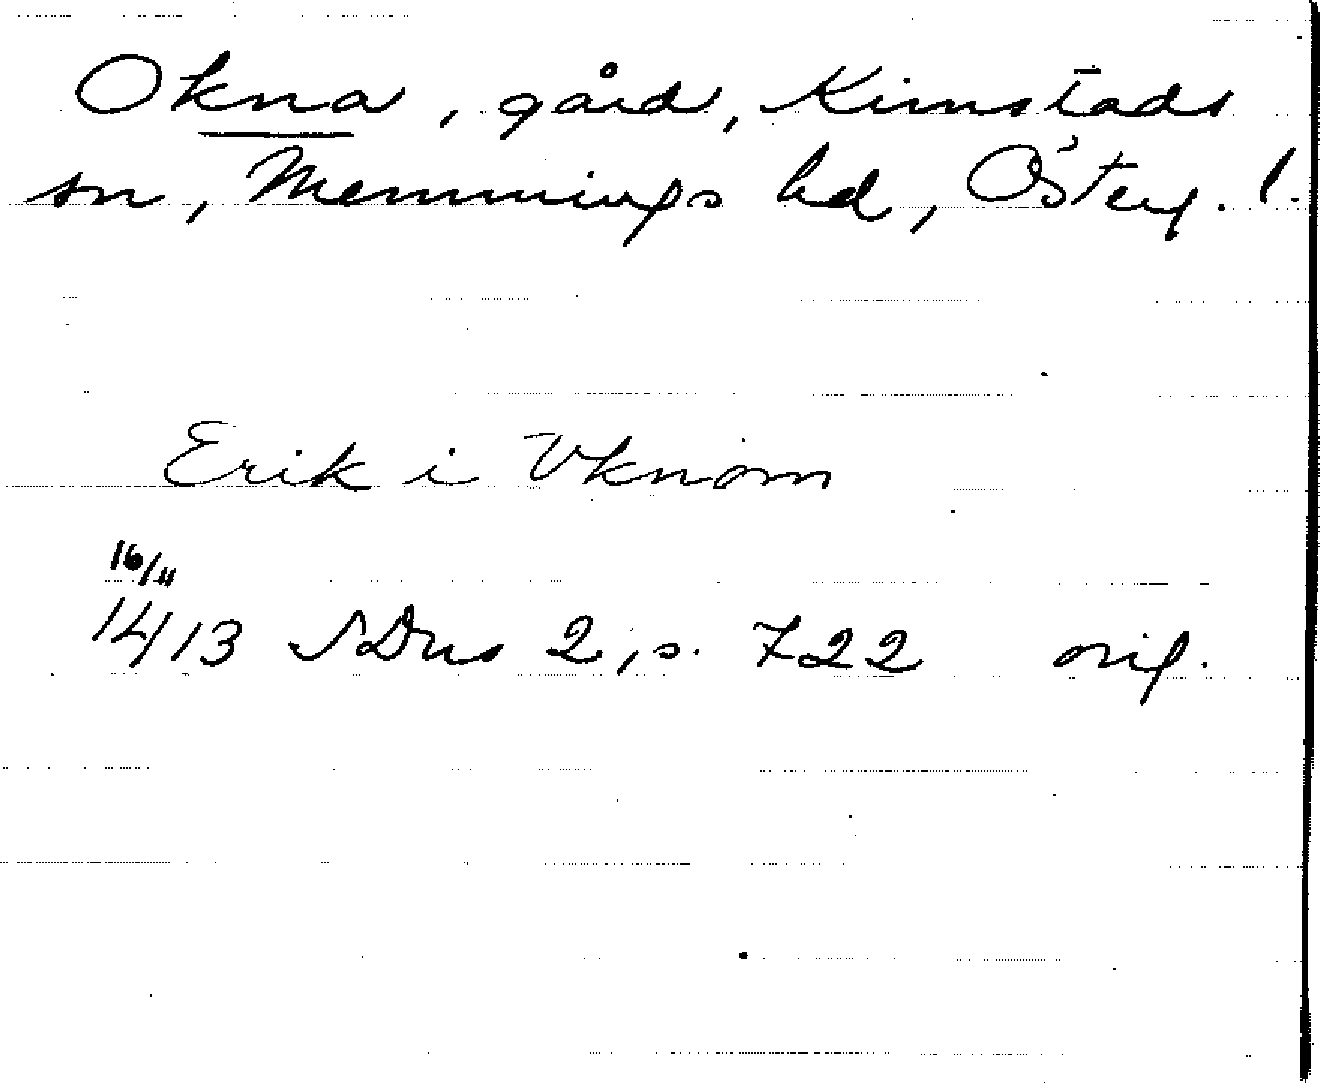 Okna, gård, Kimstads
sn, Memmings hd, Österg. l.
Erik i Vknom
16/11
1413 SDns 2, s. 722 orig.